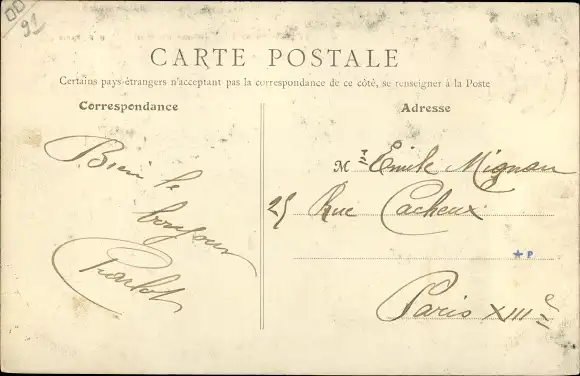 91
CARTE POSTALE
Certains pays étrangers n'acceptant pas la correspondance de ce côté, se renseigner à la Poste
Correspondance
Adresse
Bien le
bonjour
Mr Emile Mignan
25 Rue Cacheux
★ P
Paris XIIIe